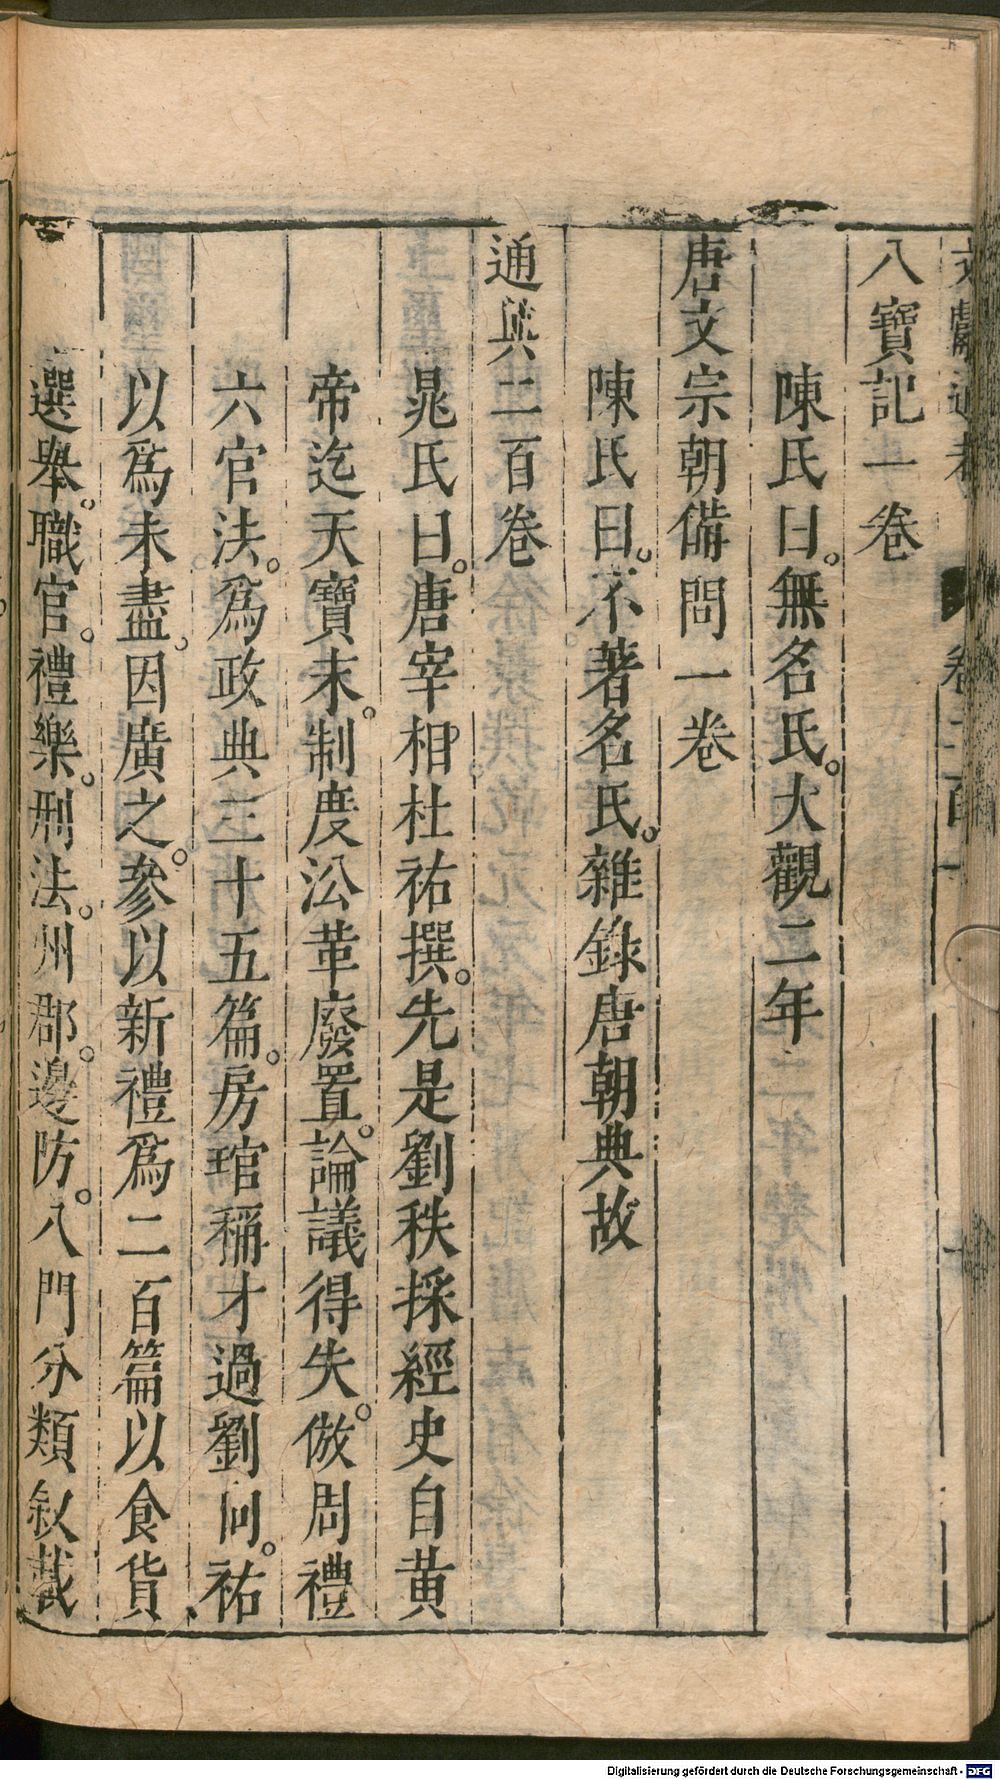 八寶記一卷
陳氏曰。無名氏。大觀二年
唐文宗朝備問一卷
陳氏曰。不著名氏。雜錄唐朝典故
通典二百卷
晁氏曰。唐宰相杜祐撰。先是劉秩採經史自黃
帝迄天寶末。制度㳂革廢置。論議得失。倣周禮
六官法。爲政典三十五篇。房琯稱才過劉向。祐
以爲未盡。因廣之。參以新禮爲二百篇以食貨
選舉。職官。禮樂。刑法。州郡。邊防。八門分類敘載
Digitalisierung gefördert durch die Deutsche Forschungsgemeinschaft - DFG